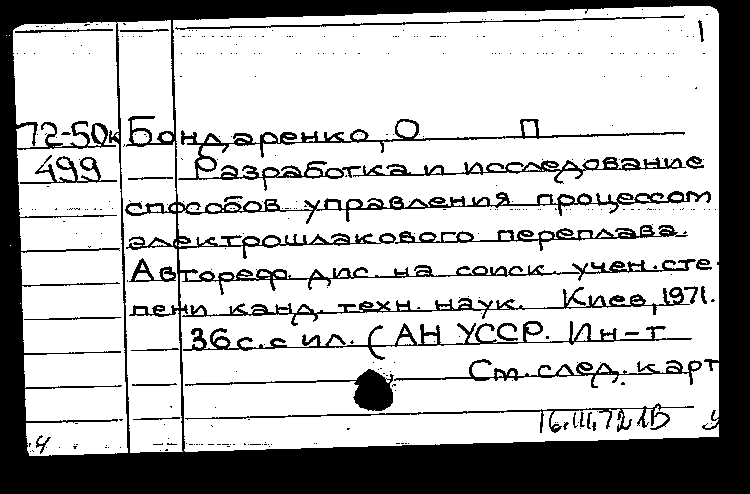 1
72-50к Бондаренко, О П
499 Разработка и исследование
способов управления процессом
электрошлакового переплава.
Автореф. дис. на соиск. учен. сте-
пени канд. техн. наук. Киев, 1971.
36 с. с ил. (АН УССР. Ин-т
См. след. карт
16.III.72 1В У
4